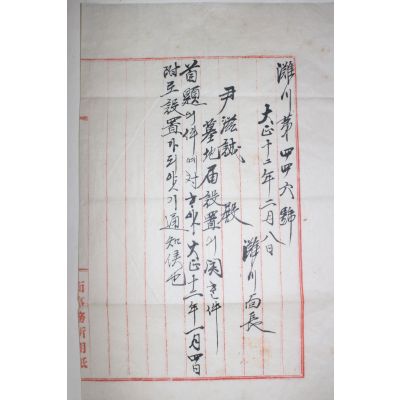 灘川第四四六號
大正十二年二月八日
灘川面長
尹滋誠 殿
墓地届設置의関한件
首題의件에対하야大正十二年一月四日
附로設置가되얏기通知候也
面事務所用紙